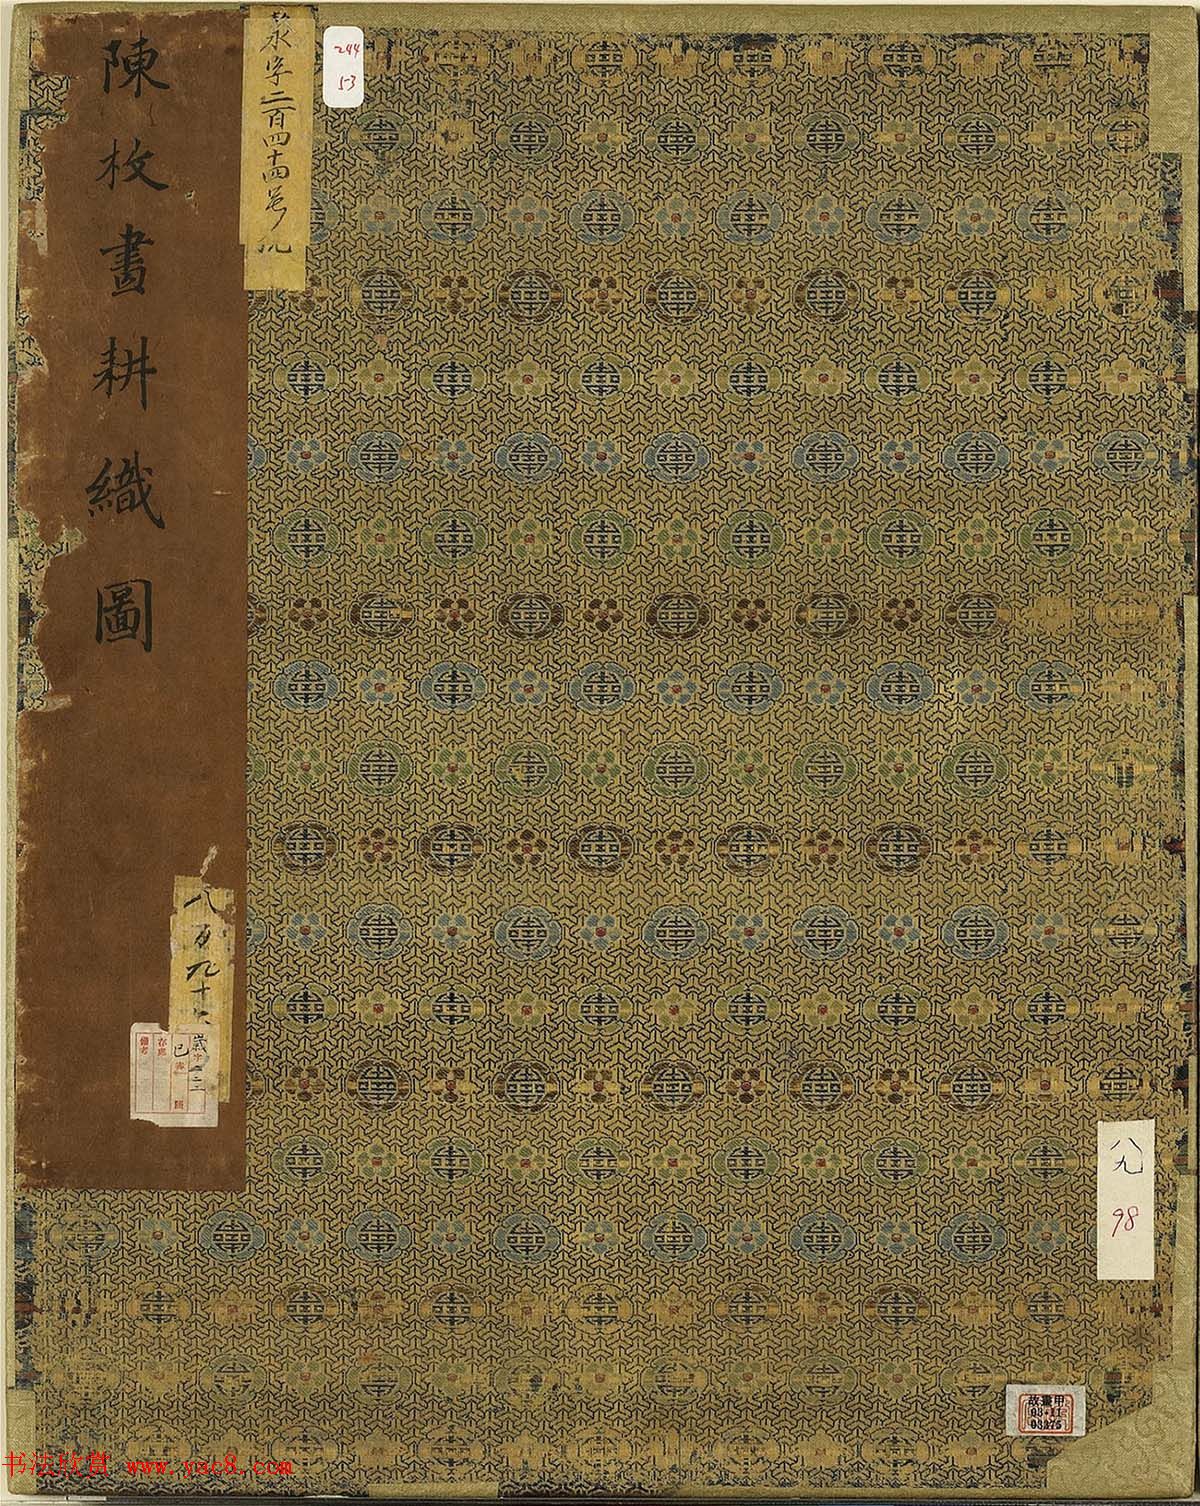 陳枚畫耕織圖
字二百四十四号
244
53
八百九十
字
存處
備考
八九
98
故畫甲
03-11
03275
书法欣赏 www.yac8.com